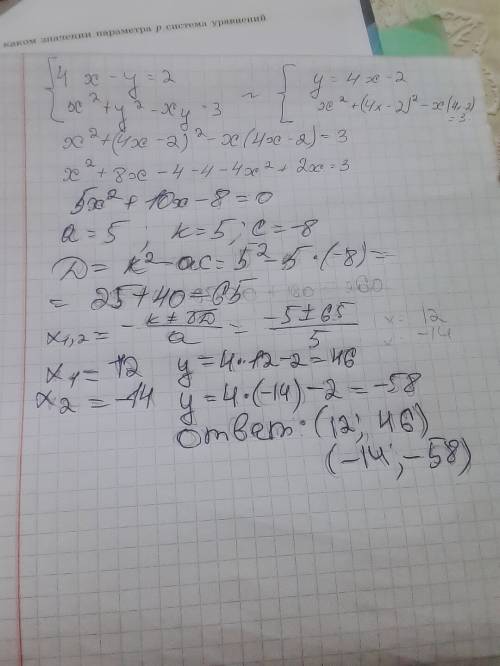 каком значении параметра p система уравнений
{ 4x - y = 2 ~ { y = 4x - 2
x² + y² - xy = 3 x² + (4x-2)² - x(4x-2) = 3
x² + (4x-2)² - x(4x-2) = 3
x² + 8x - 4 - 4 - 4x² + 2x = 3
5x² + 10x - 8 = 0
a = 5 ; к = 5 ; c = -8
D = к² - ac = 5² - 5 · (-8) =
= 25 + 40 = 65
x₁,₂ = - к ± √D / a = -5 ± 65 / 5 x = 12
-14
x₁ = 12 y = 4 · 12 - 2 = 46
x₂ = -14 y = 4 · (-14) - 2 = -58
ответ: (12; 46)
(-14; -58)